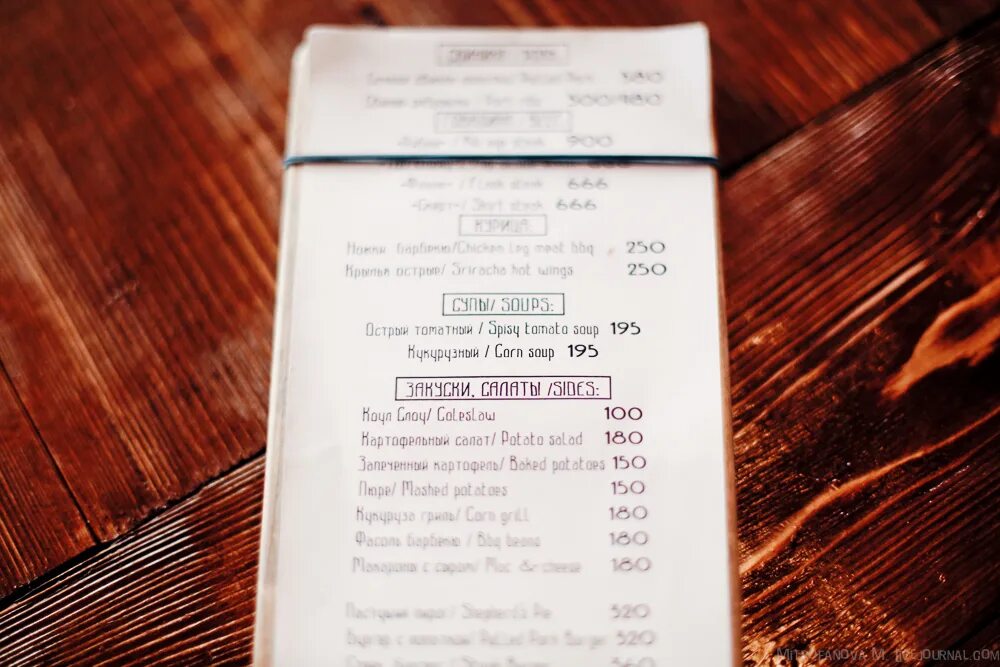 580
Pork ribs 500/980
900
/ Flank steak 666
/ Skirt steak 666
КУРИЦА:
Ножки барбекю/Chicken leg meat bbq 250
Крылья острые/ Sriracha hot wings 250
СУПЫ/ SOUPS:
Острый томатный / Spisy tomato soup 195
Кукурузный / Corn soup 195
ЗАКУСКИ, САЛАТЫ /SIDES:
Коул Слоу/ Coleslaw 100
Картофельный салат/ Potato salad 180
Запеченный картофель/ Baked potatoes 150
Пюре/ Mashed potatoes 150
Кукуруза гриль/ Corn grill 180
Фасоль барбекю / Bbq beans 180
Макароны с сыром/ Mac & cheese 180
Пастуший пирог/ Shepherd's Pie 320
Бургер с копотным/ Pulled Pork Burger 320
360